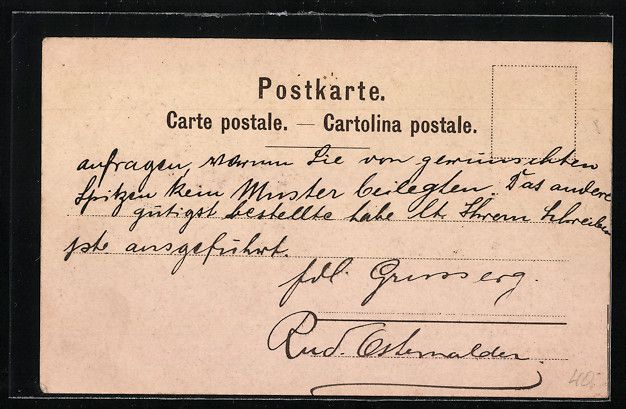 Postkarte.
Carte postale. — Cartolina postale.
anfragen, warum Sie von gewünschten
Spitzen kein Muster beilegten. Das andere
gütigst bestellte habe lt. Ihrem Schreiben
pto ausgeführt.
fdl.
Rud. Osterwalder.
40.-